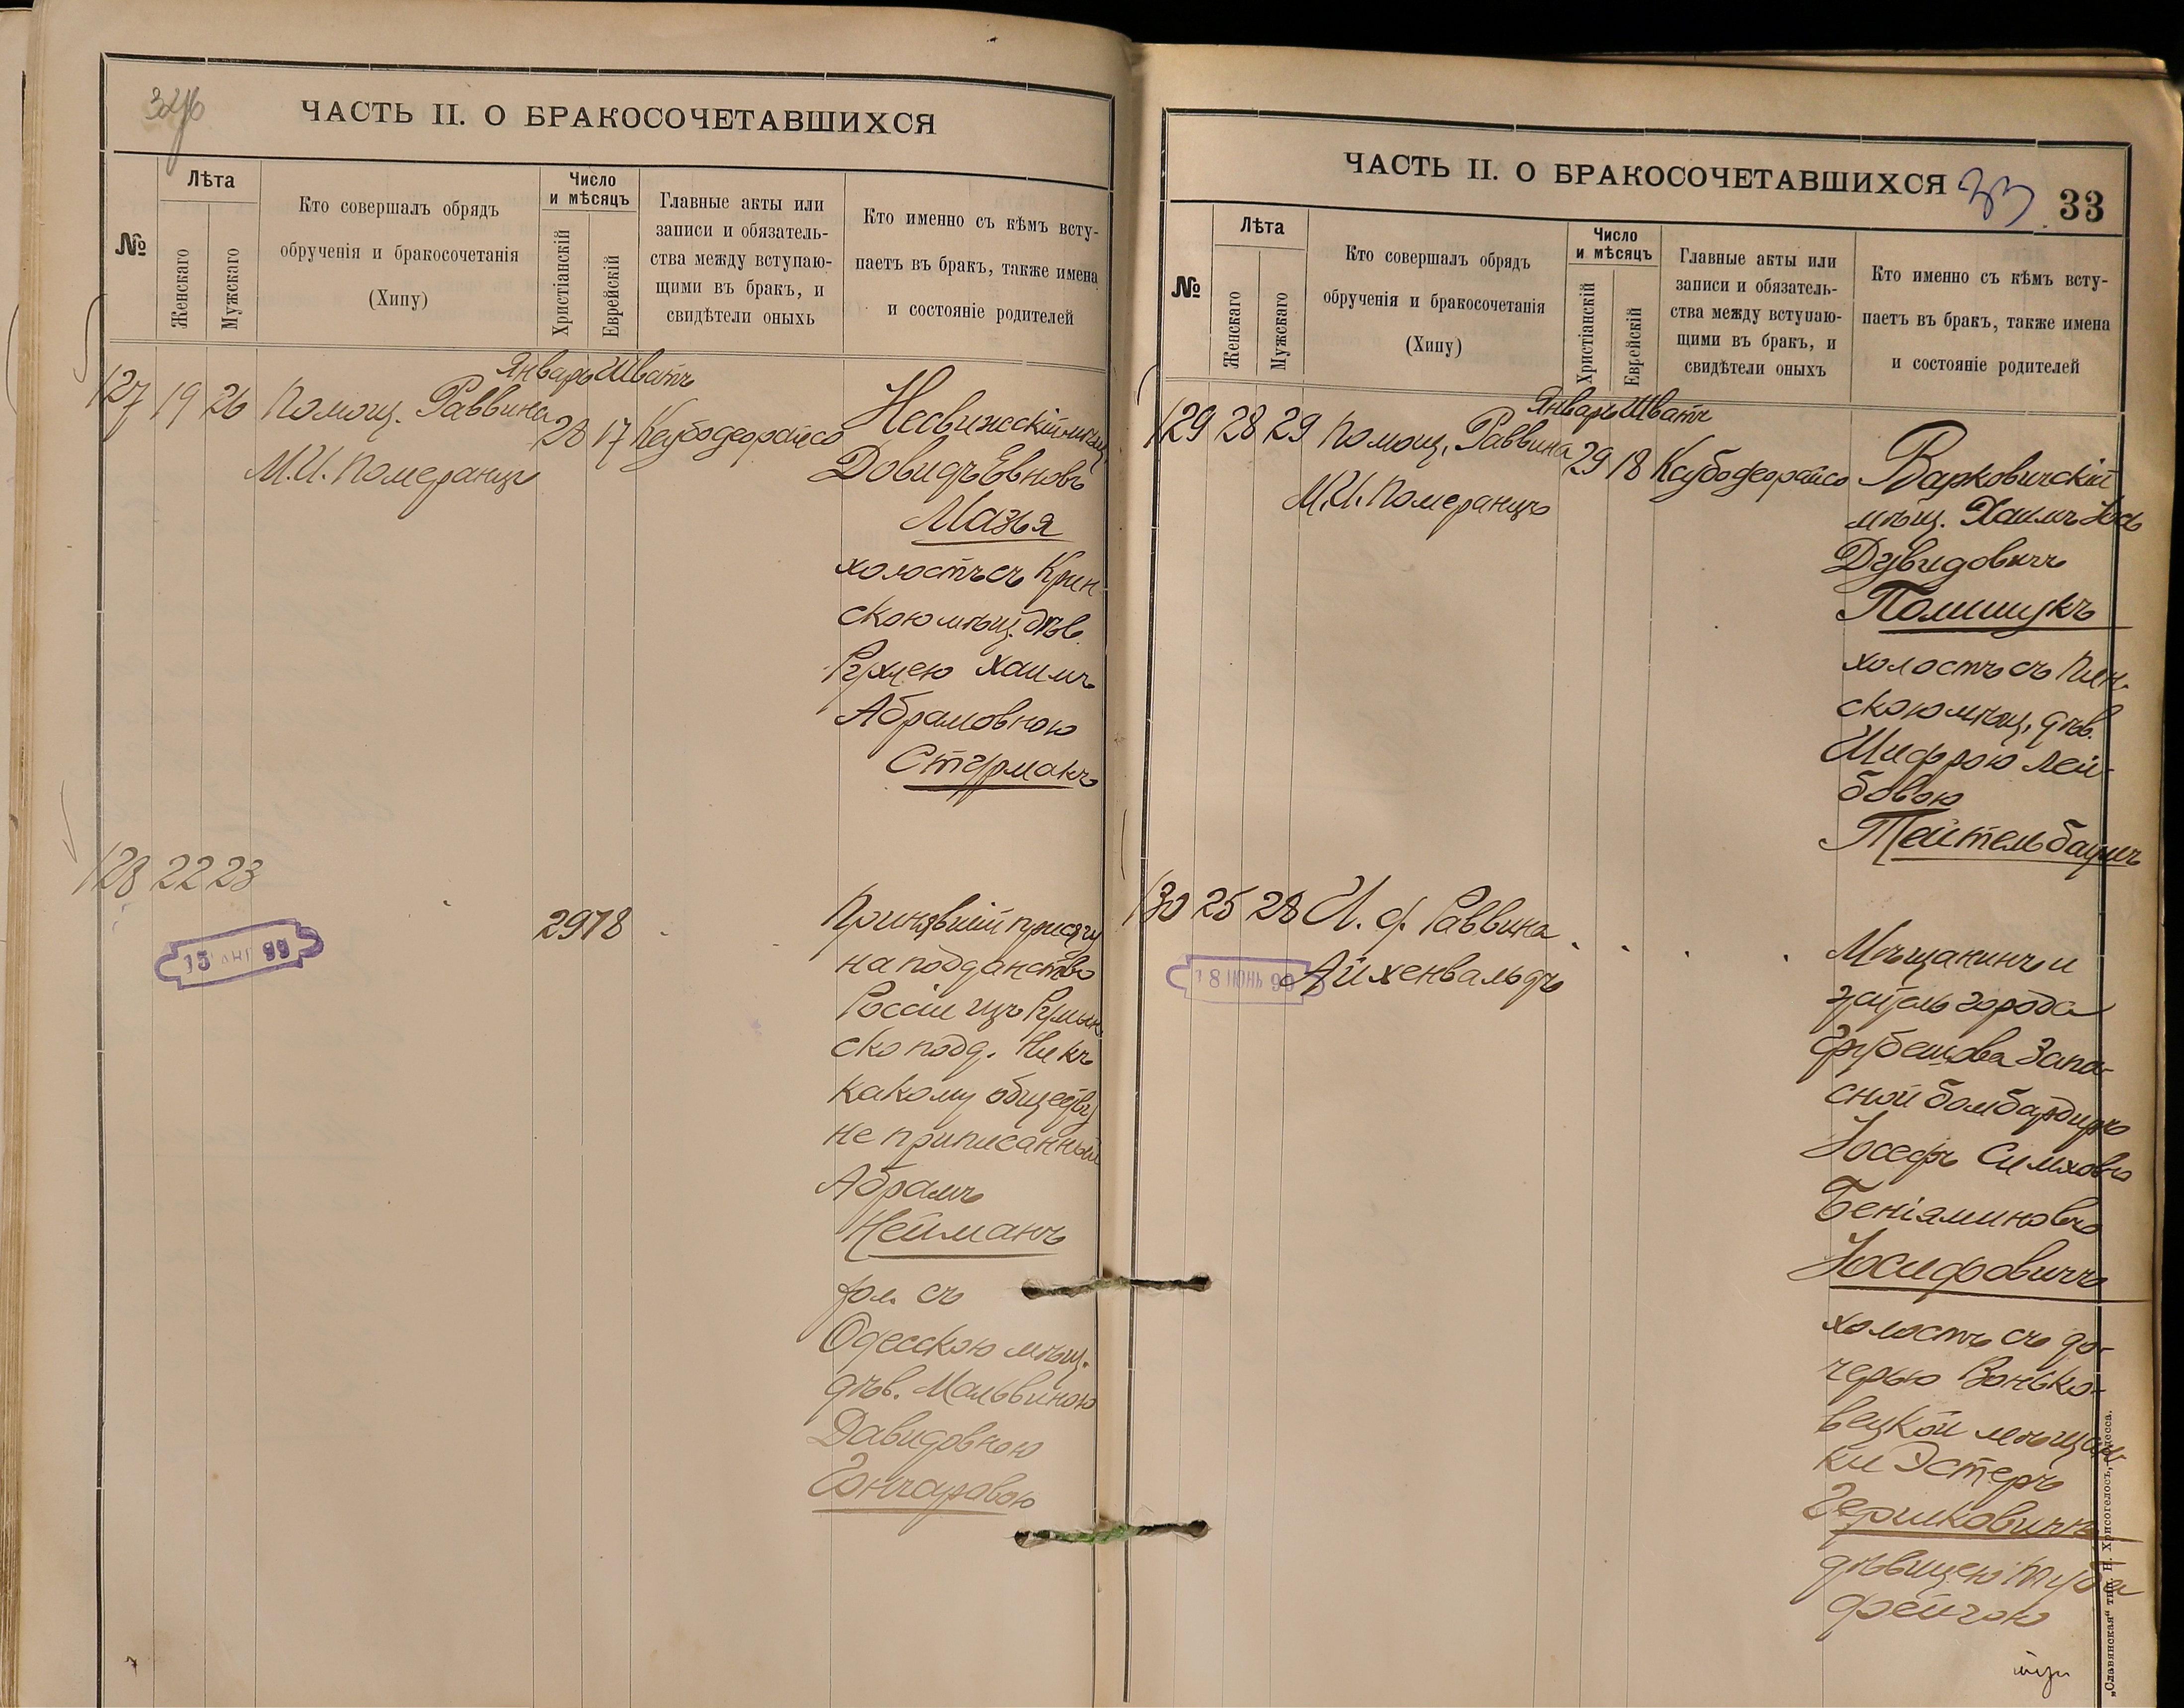 ЧАСТЬ II. О БРАКОСОЧЕТАВШИХСЯ
№
Лѣта
Женскаго
Мужскаго
Кто совершалъ обрядъ
обрученія и бракосочетанія
(Хипу)
Число
и мѣсяцъ
Христіанскій
Еврейскій
Главные акты или
записи и обязатель-
ства между вступаю-
щими въ бракъ, и
свидѣтели оныхъ
Кто именно съ кѣмъ всту-
паетъ въ бракъ, также имена
и состояніе родителей
Январь Шватъ
127 19 26 Помощ. Раввина
М.И. Померанцъ
28 17 Ксубодеорайсо
Несвижскій мѣщ
Довидъ Евновъ
Мазья
холостъ съ Крин
скою мѣщ. дѣв.
Рухлею Хаимъ
Абрамовною
Стурмакъ
128 22 23
15 АНГ 99
29 18
Принявшій присягу
на подданство
Россіи изъ Румын
ско подд. Ни къ
какому обществу
не приписанный
Абрамъ
Нейманъ
хол. съ
Одесскою мѣщ.
дѣв. Мальвиною
Давидовною
Гончаровою
ЧАСТЬ II. О БРАКОСОЧЕТАВШИХСЯ 33 33
№
Лѣта
Женскаго
Мужскаго
Кто совершалъ обрядъ
обрученія и бракосочетанія
(Хипу)
Число
и мѣсяцъ
Христіанскій
Еврейскій
Главные акты или
записи и обязатель-
ства между вступаю-
щими въ бракъ, и
свидѣтели оныхъ
Кто именно съ кѣмъ всту-
паетъ въ бракъ, также имена
и состояніе родителей
Январь Шватъ
129 28 29 Помощ. Раввина
М.И. Померанцъ
29 18 Ксубодеорайсо
Варковичскій
мѣщ. Хаимъ Іось
Дувидовичъ
Полищукъ
холостъ съ Пин-
скою мѣщ. дѣв.
Шифрою Лей-
бовою
Тейтельбаумъ
130 25 28 И. д. Раввина
Айхенвальдъ
18 ІЮНЬ 99
Мѣщанинъ и
житель города
Грубешова Запа-
сной бомбардиръ
Іосефъ Симховъ
Беніаминовъ
Іосифовичъ
холостъ съ до-
черью Вонько-
вецкой мѣщан-
ки Эстеръ
Гершковичъ
дѣвицею Туба
Фейгою
„Славянская“ тип. Н. Хрисогелосъ, Одесса.